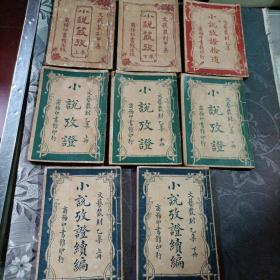 文藝叢刻甲集
小說叢攷
上卷
商務印書館版
文藝叢刻甲集
小說叢攷
下卷
商務印書館版
文藝叢刻乙集
小說攷證拾遺
商務印書館印行
文藝叢刻乙集
小說攷證
商務印書館印行
文藝叢刻乙集
小說攷證
商務印書館印行
文藝叢刻乙集
小說攷證
商務印書館印行
文藝叢刻乙集
小說攷證續編
商務印書館印行
文藝叢刻乙集
小說攷證續編
商務印書館印行